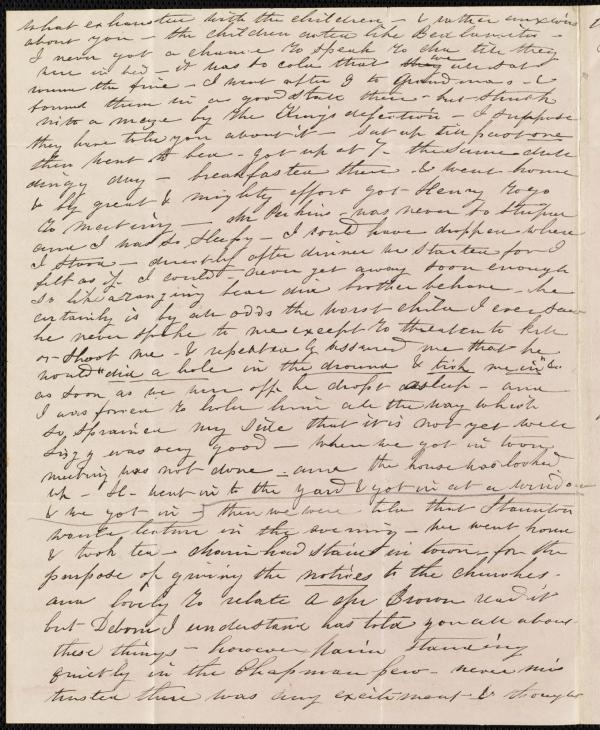 what exhausted with the children - & rather anxious
about you - the children acted like Bedlamites -
I never got a chance to speak to due till they
were in bed - it was so cold that we all sat
round the fire - I went after 9 to Grandma's - &
found them in a good state there - but struck
with a maze by the Kings defection - I suppose
they have told you about it - Sat up till past one
then went to bed - got up at 7 the same dull
dingy day - breakfasted there - & went home
& by great & mighty effort got Henry to go
to meeting - Mr Perkins was never so stupid
and I was so sleepy - I could have dropped where
I stood - directly after dinner we started for I
felt as if I could never get away soon enough
So like a ranging bear did brother behave - he
certainly is by all odds the worst child I ever saw
he never spoke to me except to threaten to kill
or shoot me - & repeatedly assured me that he
would "did a hole in the dround & tick me in" &c
as soon as we were off he dropt asleep - and
I was forced to hold him all the way which
so sprained my side that it is not yet well
Lizzy was very good - when we got in town
meeting was not done - and the house was locked
up - so went in to the yard & got in at a window
& we got in - then we were told that Staunton
would lecture in the evening - we went home
& took tea - had staid in town for the
purpose of giving the notices to the churches -
and lovely to relate Brown read it
but Debora I understand has told you all about
these things - however Maria standing
quietly in the Chapman pew - never mis
trusted there was any excitement & thought